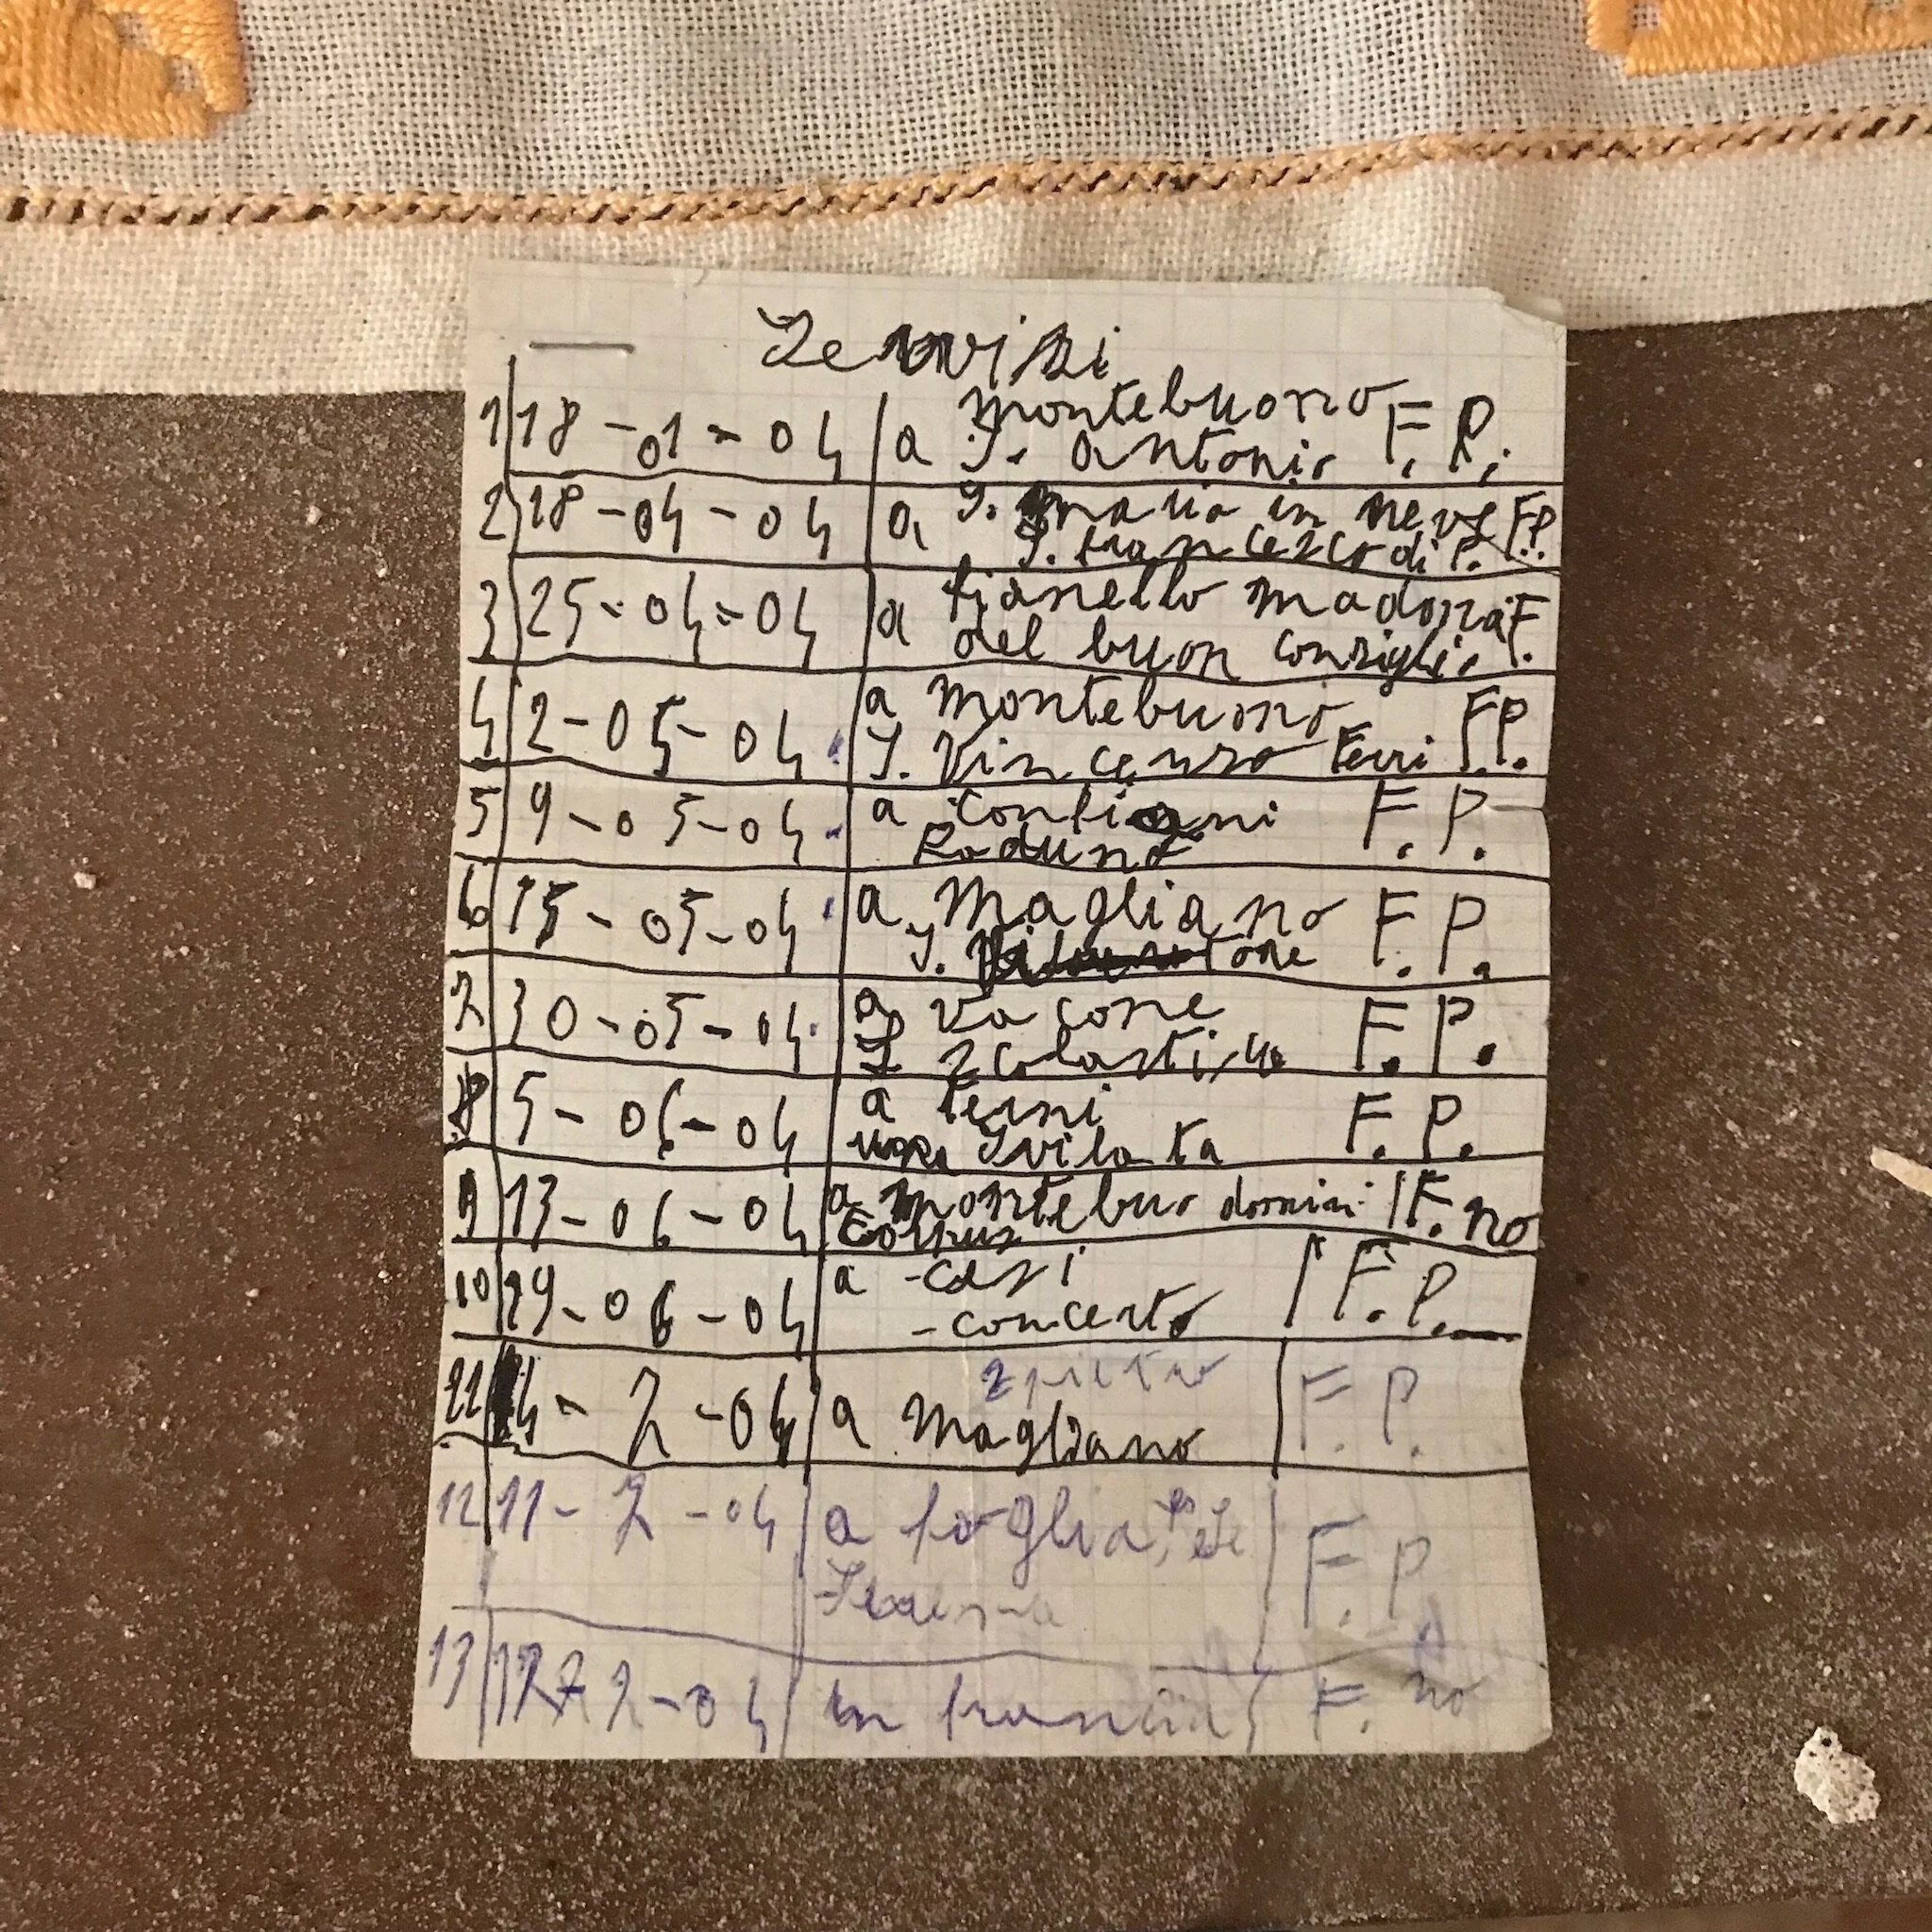 Servizi
1 18-01-04 a Montebuono F. P.
S. Antonio
2 18-04-04 a S. Maria in neve F.P.
S. francesco di P.
3 25-04-04 a fianello madona F.
del buon consiglio
4 2-05-04 a Montebuono F.P.
S. Vincenzo Ferri
5 9-05-04 a Configni F. P.
Raduno
6 15-05-04 a Magliano F. P.
S.
7 30-05-04 a Vacone F. P.
S Scolastica
8 5-06-04 a Terni F. P.
Svilata
9 13-06-04 a Montebuo domini F. no
Corpus
10 19-06-04 a -Casi F. P.
-concerto
S pietro
11 4-7-04 a Magliano F. P.
12 11-7-04 a foglia, F. P.
13 7-04 in francia F. no